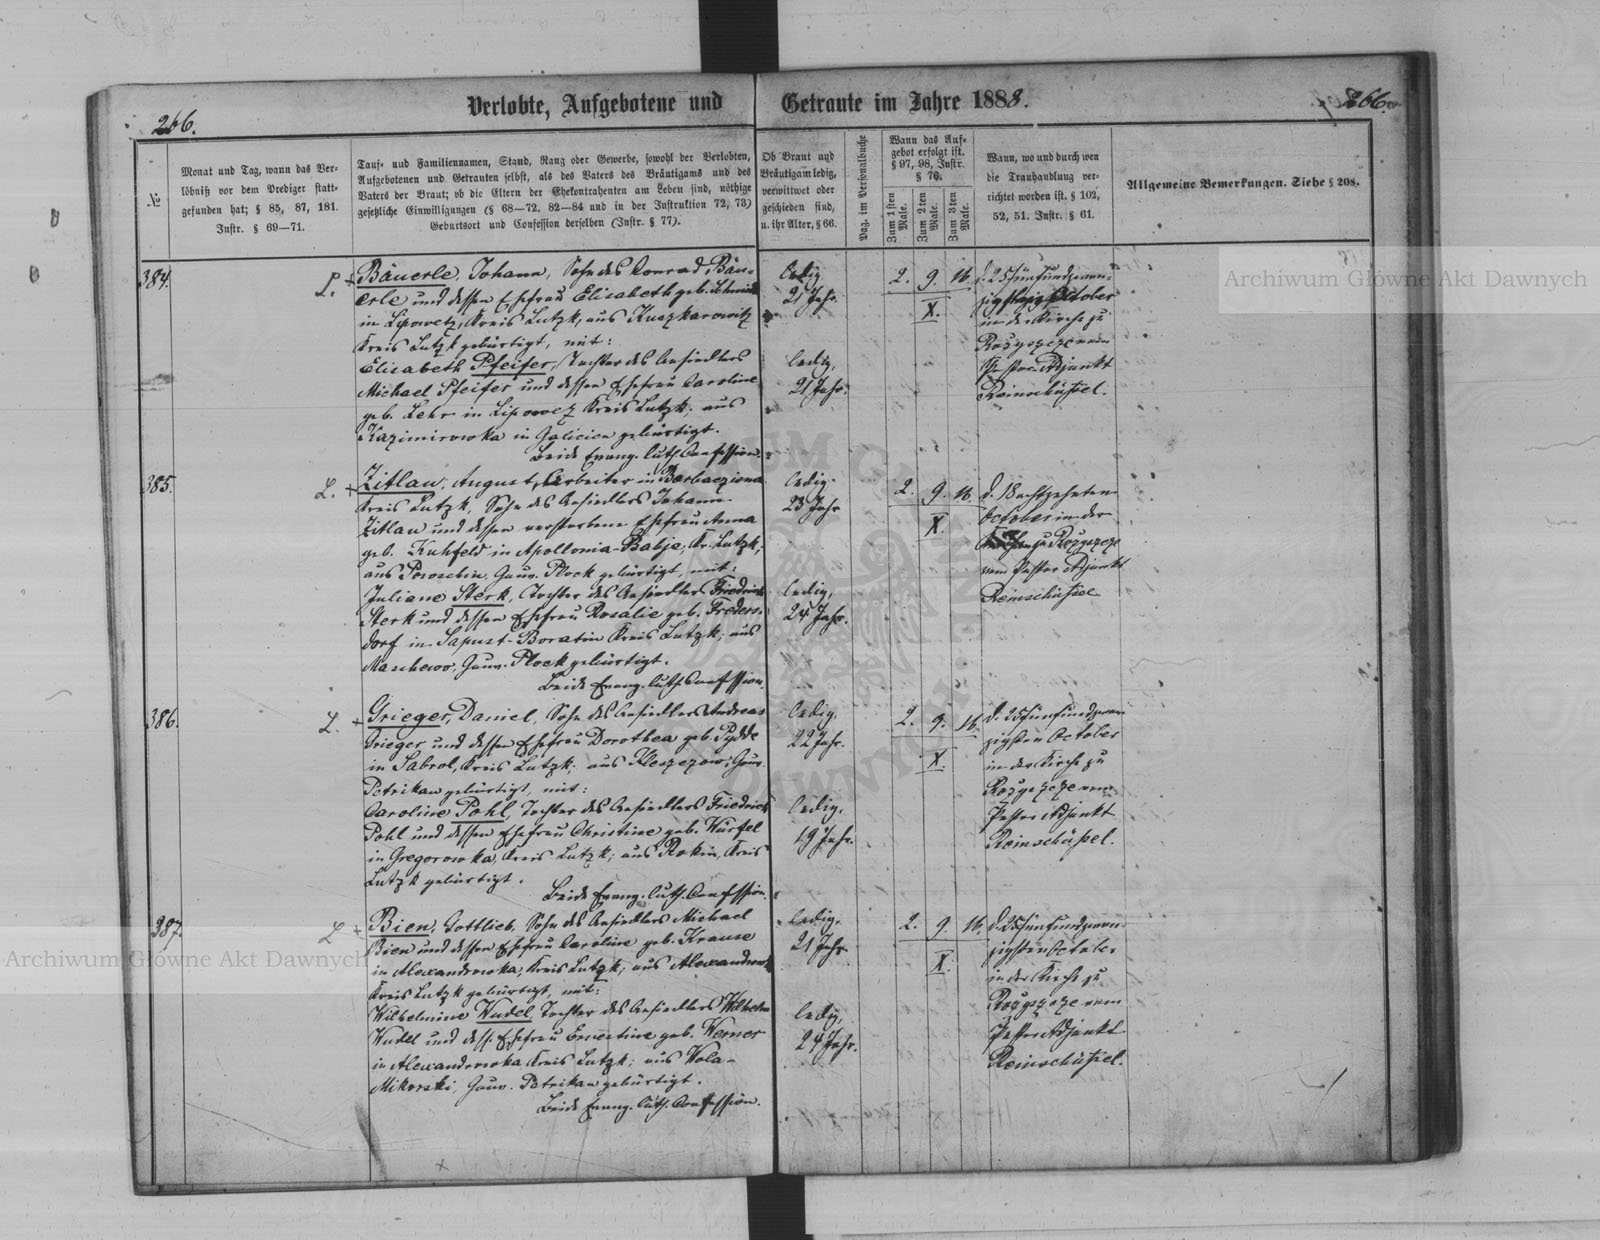 266.
Verlobte, Aufgebotene und
Getraute im Jahre 1888.
266
№
Monat und Tag, wann das Ver-
löbniß vor dem Prediger statt-
gefunden hat; § 85, 87, 181.
Instr. § 69—71.
Tauf- und Familiennamen, Stand, Rang oder Gewerbe, sowohl der Verlobten,
Aufgebotenen und Getrauten selbst, als des Vaters des Bräutigams und des
Vaters der Braut; ob die Eltern der Ehekontrahenten am Leben sind, nöthige
gesetzliche Einwilligungen (§ 68—72. 82—84 und in der Instruktion 72, 73)
Geburtsort und Confession derselben (Instr. § 77).
Ob Braut und
Bräutigam ledig,
verwittwet oder
geschieden sind,
u. ihr Alter, § 66.
Pag. im Personalbuche
Wann das Auf-
gebot erfolgt ist.
§ 97, 98, Instr.
§ 76.
Zum 1sten Male.
Zum 2ten Male.
Zum 3ten Male.
Wann, wo und durch wen
die Trauhandlung ver-
richtet worden ist. § 102,
52, 51. Instr. § 61.
Allgemeine Bemerkungen. Siehe § 208.
384.
L. +
Bäuerle, Johann, Sohn des Conrad Bäu-
erle und dessen Ehefrau Elisabeth geb. Schmidt
in Lipowetz, Kreis Lutzk, aus Kuszkarowitz
Kreis Lutzk gebürtigt, mit:
Elisabeth Pfeifer, Tochter des Ansiedlers
Michael Pfeifer und dessen Ehefrau Caroline
geb. Lehr in Lipowez Kreis Lutzk; aus
Kazimirowka in Galicien gebürtigt.
Beide Evang. luth. Confession.
ledig
21 Jahr.
ledig,
21 Jahr.
2. 9. 16.
X.
d. 25 fünfundzwan-
zigsten October
in der Kirche zu
Rozyszcze vom
Pastor Adjunkt
Reinschüssel.
385.
L. +
Zitlau, August, Arbeiter in Barbaziona
Kreis Lutzk, Sohn des Ansiedlers Johann
Zitlau und dessen verstorbene Ehefrau Anna
geb. Kuhfeld in Apollonia-Babje, Kr. Lutzk;
aus Pososchin, Gouv. Plock gebürtigt, mit:
Juliane Sterk, Tochter des Ansiedlers Friedrich
Sterk und dessen Ehefrau Rosalie geb. Freders-
dorf in Sapust-Boratin Kreis Lutzk; aus
Maschewo, Gouv. Plock gebürtigt.
Beide Evang. luth. Confession.
ledig.
23 Jahr
ledig,
24 Jahr.
2. 9. 16.
X.
d. 18 achtzehnten
October in der
Kirche zu Rozyszcze
vom Pastor Adjunkt
Reinschüssel
386.
L. +
Grieger, Daniel, Sohn des Ansiedlers Andreas
Grieger und dessen Ehefrau Dorothea geb. Pydde
in Sabrol, Kreis Lutzk; aus Kleszczow, Gouv.
Petrikau gebürtigt, mit:
Caroline Pohl, Tochter des Ansiedlers Friedrich
Pohl und dessen Ehefrau Christine geb. Würfel
in Gregorowka, Kreis Lutzk; aus Rokin, Kreis
Lutzk gebürtigt.
Beide Evang. luth. Confession.
ledig.
22 Jahr.
ledig,
19 Jahr.
2. 9. 16.
X.
d. 25 fünfundzwan-
zigsten October
in der Kirche zu
Rozyszcze vom
Pastor Adjunkt
Reinschüssel.
387.
L +
Bien, Gottlieb, Sohn des Ansiedlers Michael
Bien und dessen Ehefrau Caroline geb. Krause
in Alexandrowka, Kreis Lutzk; aus Alexandrowk
Kreis Lutzk gebürtigt, mit:
Wilhelmine Wudel, Tochter des Ansiedlers Wilhelm
Wudel und dess. Ehefrau Ernestine geb. Werner
in Alexandrowka Kreis Lutzk; aus Wola-
Mikorski, Gouv. Petrikau gebürtigt.
Beide Evang. luth. Confession.
ledig.
21 Jahr.
ledig,
24 Jahr.
2. 9. 16.
X.
d. 25 fünfundzwan-
zigsten October
in der Kirche zu
Rozyszcze vom
Pastor Adjunkt
Reinschüssel.
Archiwum Główne Akt Dawnych
Archiwum Główne Akt Dawnych